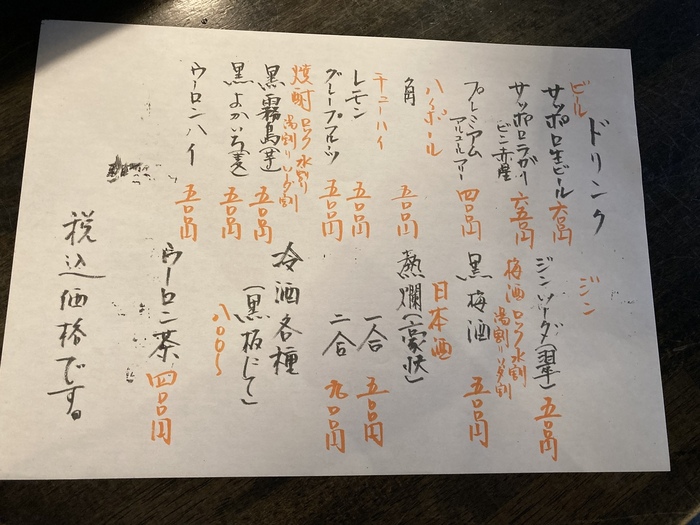 ドリンク
ビール
サッポロ生ビール 六〇〇円
サッポロラガー 六五〇円
ビン赤星
プレミアム 四〇〇円
アルコールフリー
ハイボール
角 五〇〇円
チューハイ
レモン 五〇〇円
グレープフルーツ 五〇〇円
焼酎 ロック 水割
湯割り ソーダ割
黒霧島(芋) 五〇〇円
黒よかいち(麦) 五〇〇円
ウーロンハイ 五〇〇円
ジン
ジンソーダ(翠) 五〇〇円
梅酒 ロック 水割
湯割り ソーダ割
黒梅酒 五〇〇円
日本酒
熱燗(豪快)
一合 五〇〇円
二合 九〇〇円
冷酒各種
(黒板にて)
八〇〇〜
ウーロン茶 四〇〇円
税込価格です。